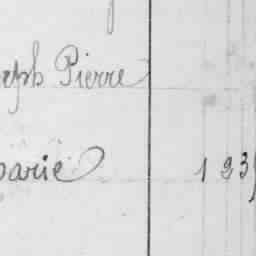 eph Pierre
arie 123